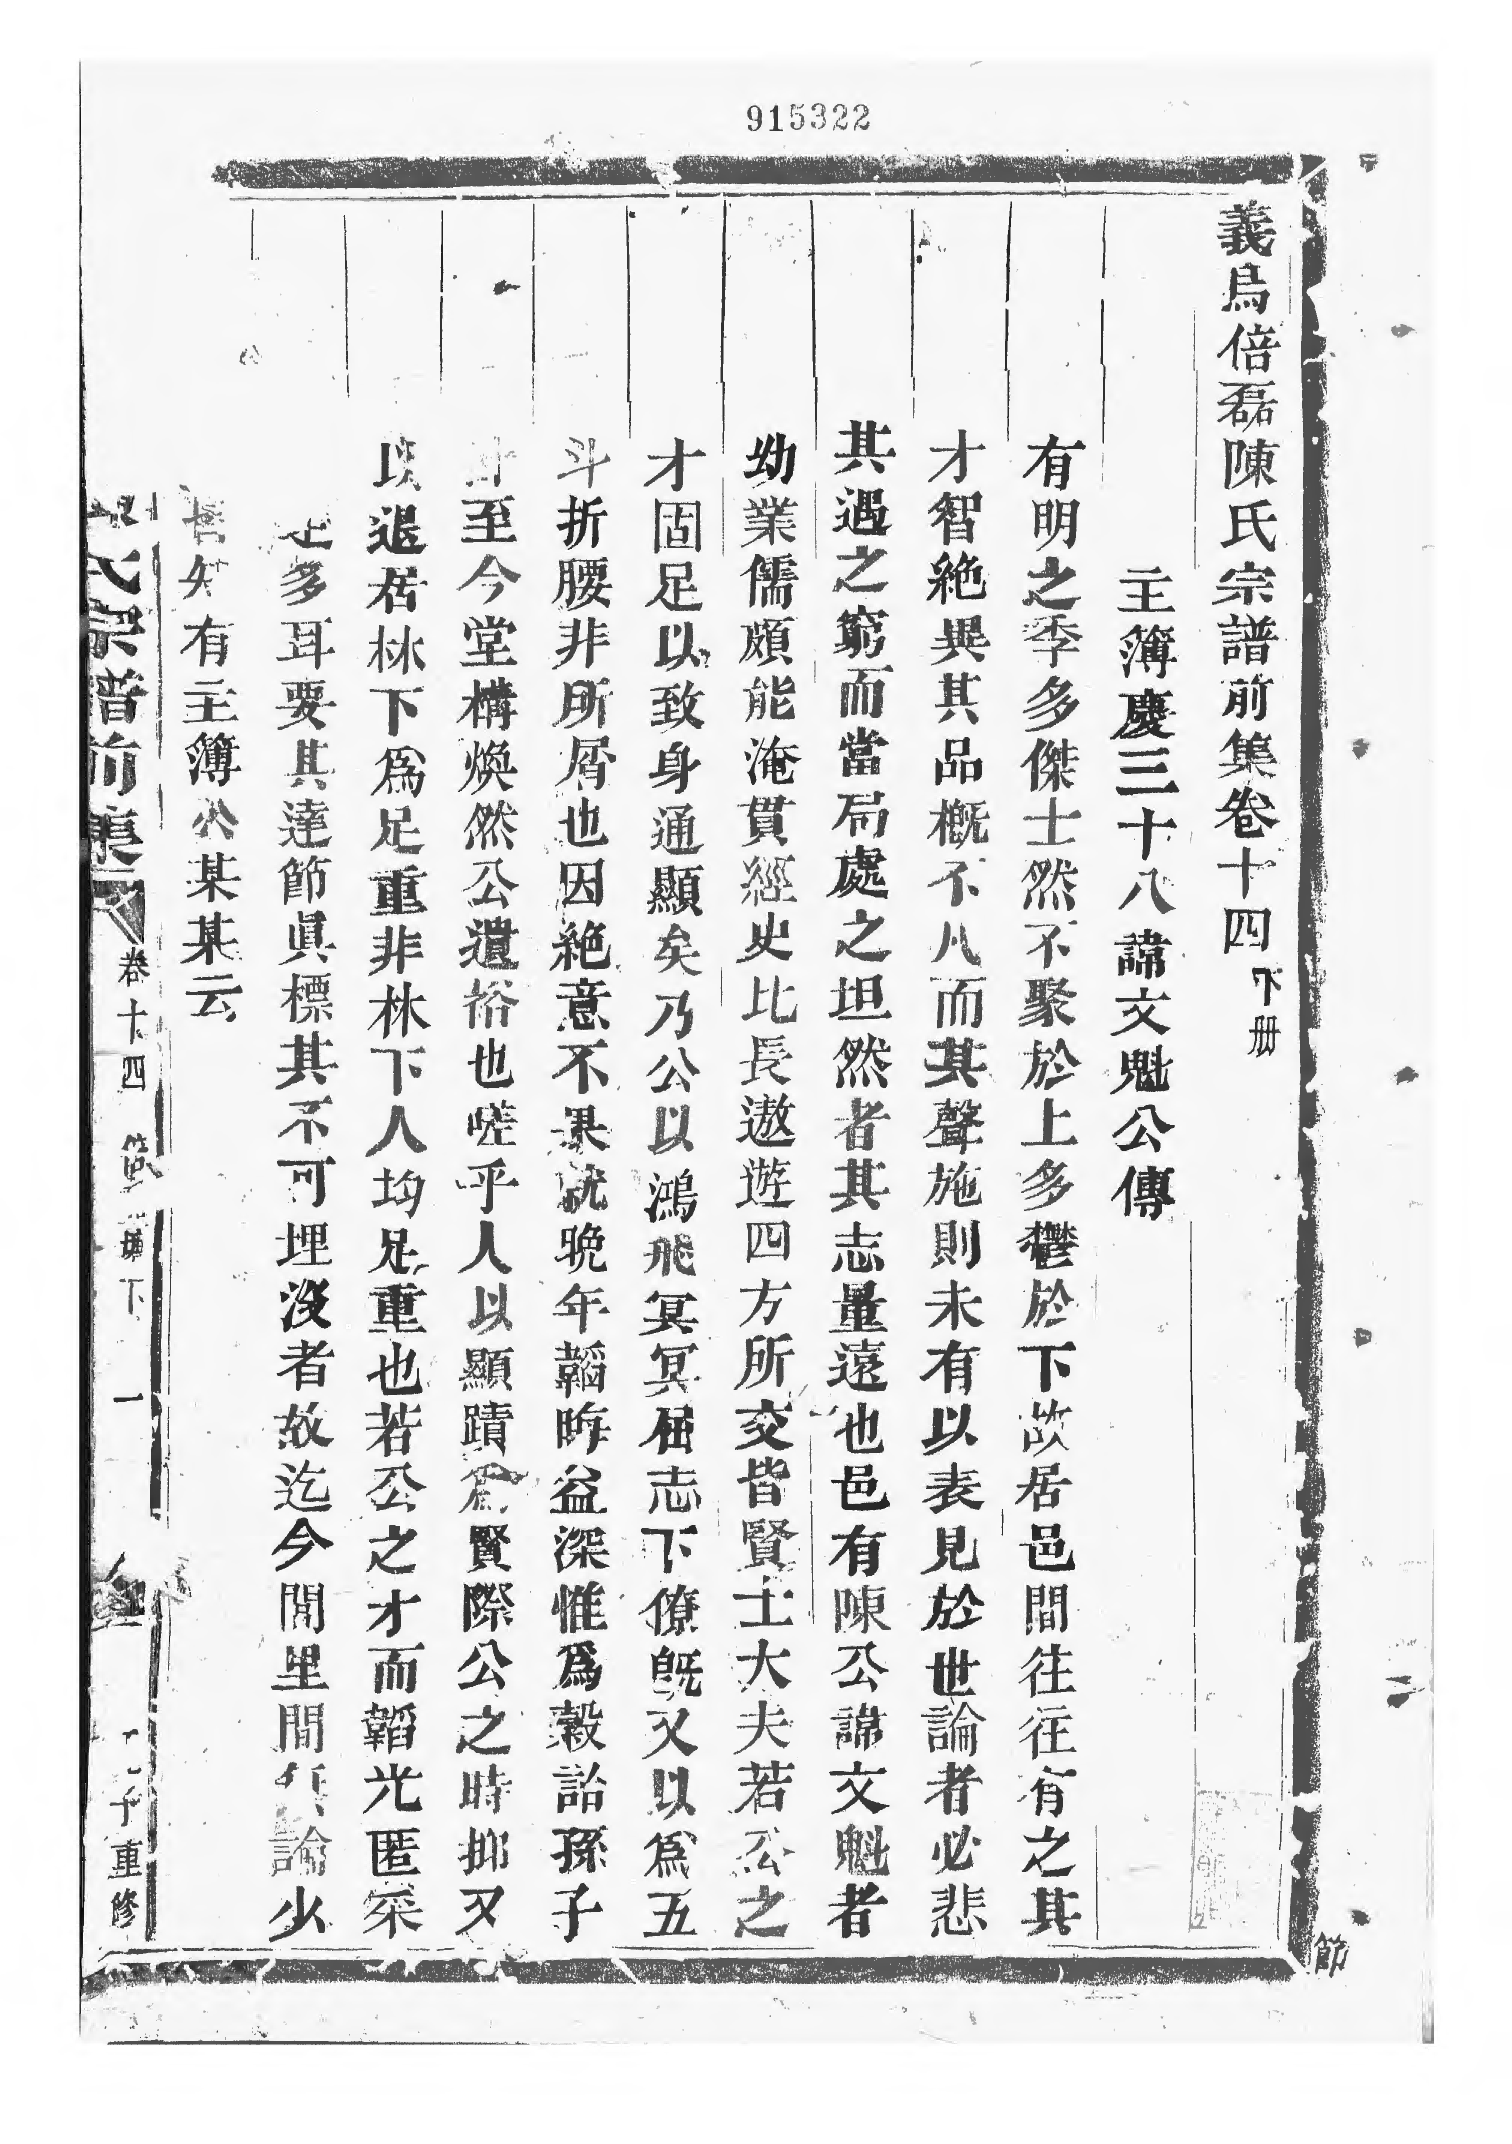 915322
義烏倍磊陳氏宗譜前集卷十四下册
主簿慶三十八諱文魁公傳
有明之季多傑士然不聚於上多鬱於下故居邑間往往有之其
才智絶異其品概不凡而其聲施則未有以表見於世論者必悲
其遇之窮而當局處之坦然者其志量遠也邑有陳公諱文魁者
幼業儒頗能淹貫經史比長遨遊四方所交皆賢士大夫若公之
才固足以致身通顯矣乃公以鴻飛冥冥屈志下僚旣又以爲五
斗折腰非所屑也因絶意不果就晩年韜晦益深惟爲穀詒孫子
計至今堂構煥然公遺裕也嗟乎人以顯蹟爲賢際公之時抑又
以退居林下爲足重非林下人均足重也若公之才而韜光匿采
足多耳要其達節眞標其不可埋沒者故迄今閭里間論少
有主簿公某某云
氏宗譜前集
卷十四
下
一
重修
節